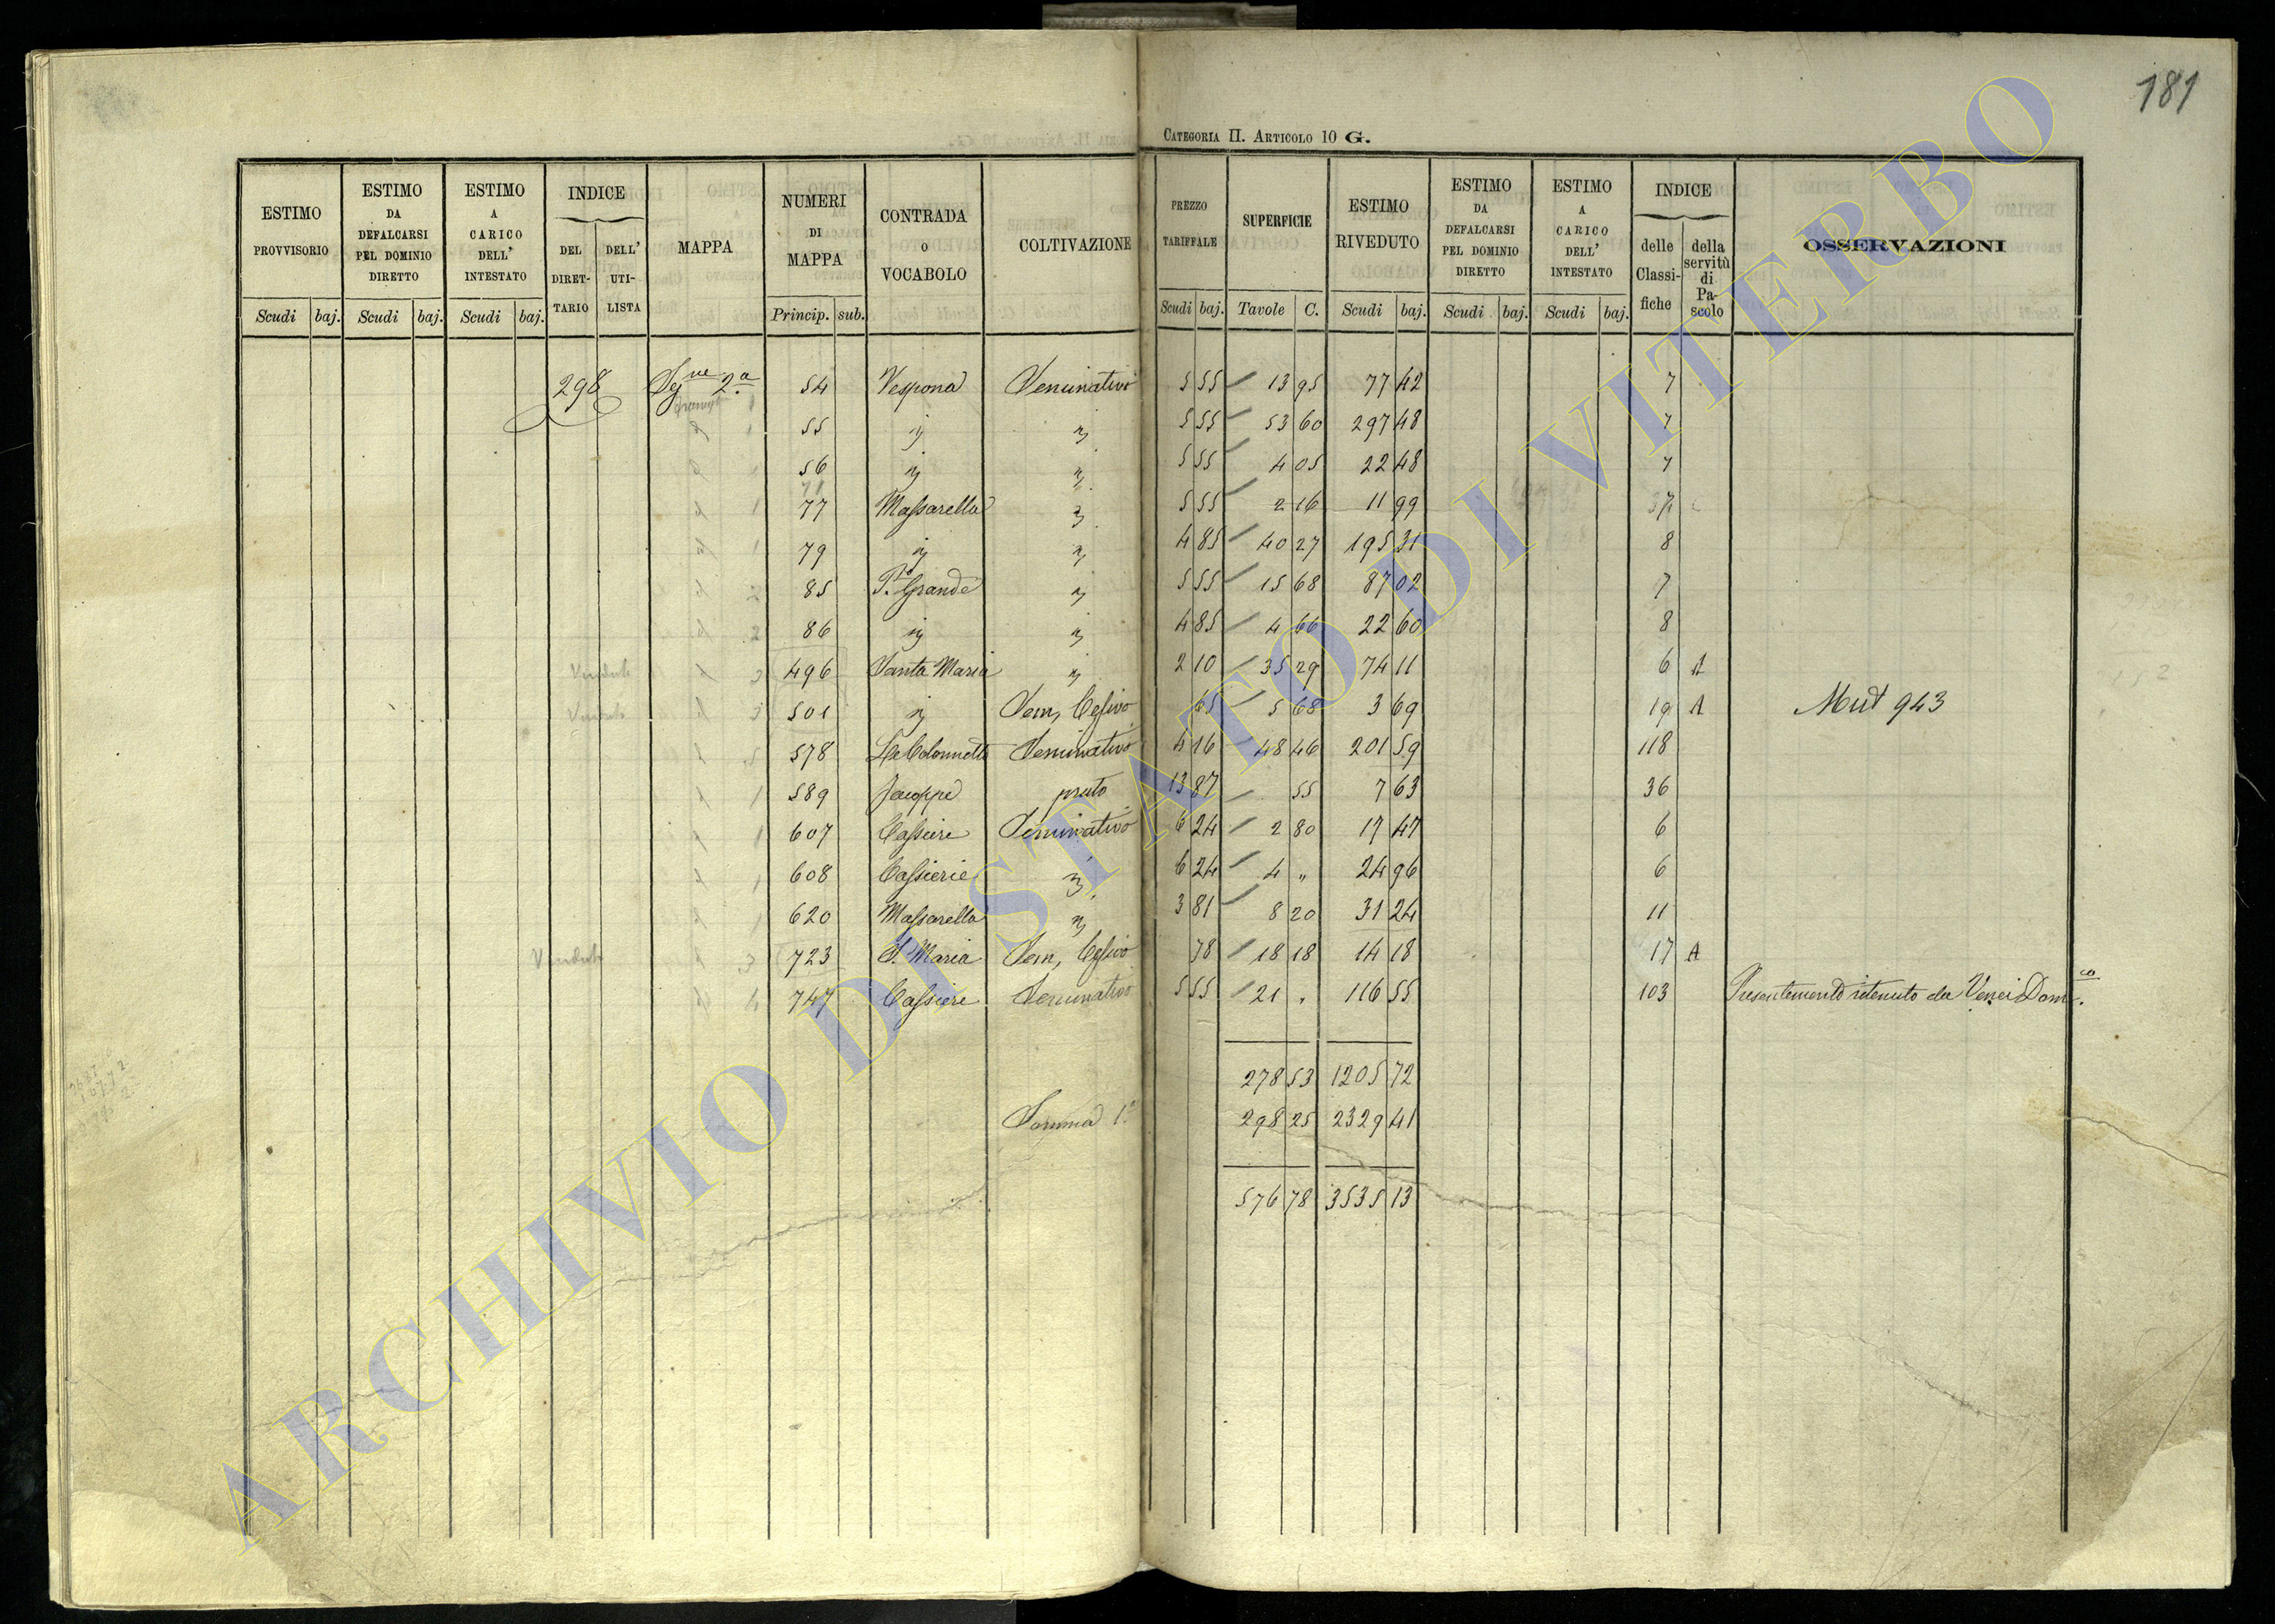 181
CATEGORIA II. ARTICOLO 10 G.
ESTIMO PROVVISORIO Scudi baj.
ESTIMO DA DEFALCARSI PEL DOMINIO DIRETTO Scudi baj.
ESTIMO A CARICO DELL' INTESTATO Scudi baj.
INDICE DEL DIRET- TARIO DELL' UTI- LISTA
MAPPA
NUMERI DI MAPPA Princip. sub.
CONTRADA O VOCABOLO
COLTIVAZIONE
PREZZO TARIFFALE Scudi baj.
SUPERFICIE Tavole C.
ESTIMO RIVEDUTO Scudi baj.
ESTIMO DA DEFALCARSI PEL DOMINIO DIRETTO Scudi baj.
ESTIMO A CARICO DELL' INTESTATO Scudi baj.
INDICE delle Classi- fiche della servitù di Pa- scolo
OSSERVAZIONI
298 Segue 2a 54 Vespona Seminativo 5 55 13 95 77 42 7
55 " " 5 55 53 60 297 48 7
56 " " 5 55 4 05 22 48 7
77 Massarella " 5 55 2 16 11 99
79 " " 4 85 40 27 195 31 8
85 P. Grande " 5 55 15 68 87 02 7
86 " " 4 85 4 66 22 60 8
Venduto 496 Santa Maria " 2 10 35 29 74 11 6 A
Venduto 501 " Sem, Cesivo 65 5 68 3 69 19 A Mut 943
578 Le Colonnette Seminativo 4 16 48 46 201 59 118
589 Jacoppe prato 13 87 55 7 63 36
607 Cassiere Seminativo 6 24 2 80 17 47 6
608 Cassierie " 6 24 4 " 24 96 6
620 Massarella " 3 81 8 20 31 24 11
Venduto 723 S. Maria Sem, Cesivo 78 18 18 14 18 17 A
747 Cassiere Seminativo 5 55 21 " 116 55 103 Presentemente ritenuto da Venci Dom.co
278 53 1205 72
Somma 1a 298 25 2329 41
576 78 3535 13
ARCHIVIO DI STATO DI VITERBO